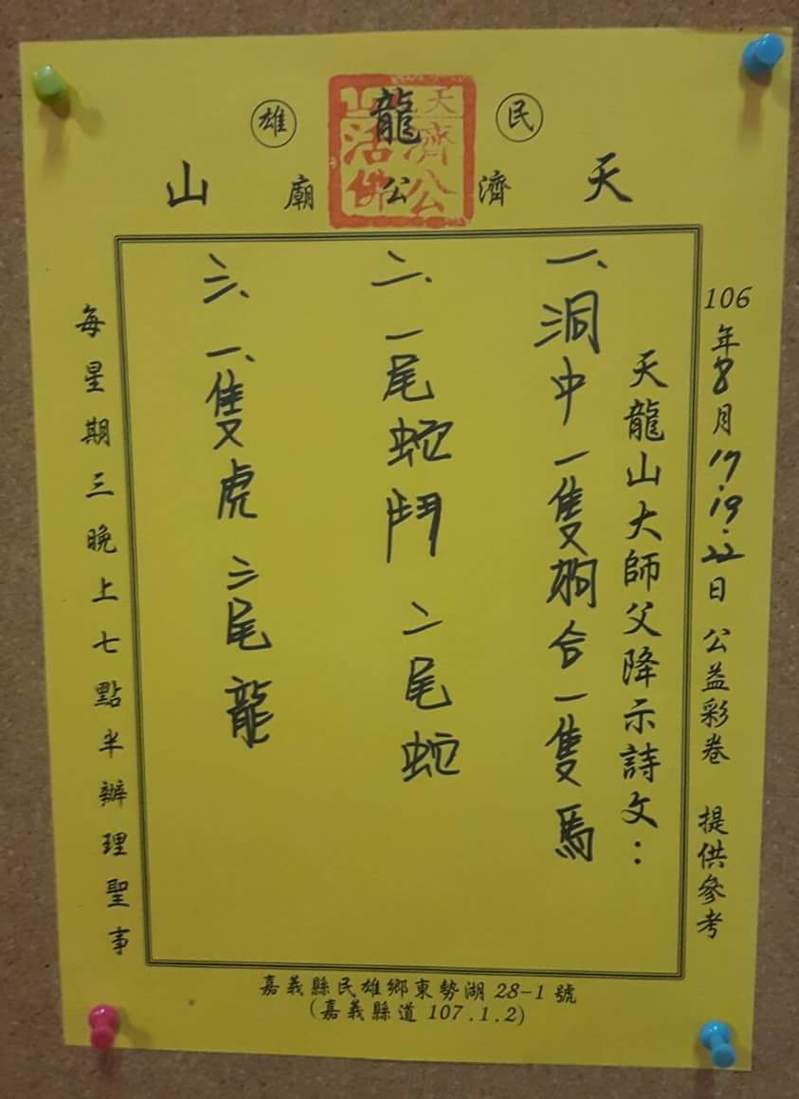 民雄
天龍山
濟公廟
濟公
活佛
106年8月17.19.22日公益彩卷 提供參考
天龍山大師父降示詩文：
一、洞中一隻狗合一隻馬
二、一尾蛇鬥二尾蛇
三、一隻虎三尾龍
每星期三晚上七點半辦理聖事
嘉義縣民雄鄉東勢湖28-1號
(嘉義縣道107.1.2)